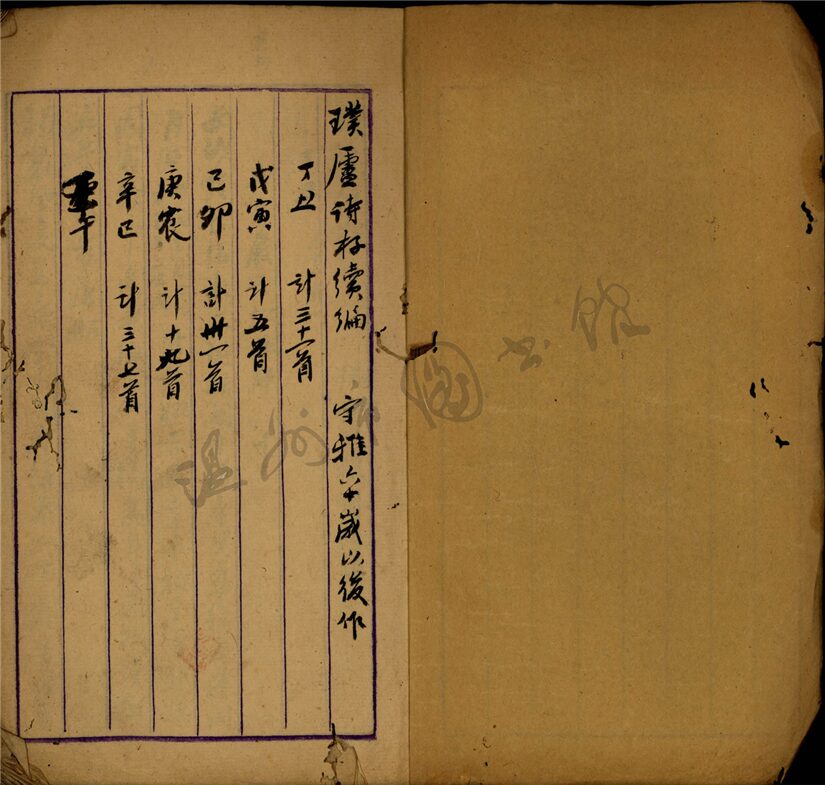 璞廬詩存續編 守雅六十歲以後作
丁丑 計三十一首
戊寅 計五首
己卯 計卅一首
庚辰 計十九首
辛巳 計三十七首
午
溫州市圖書館